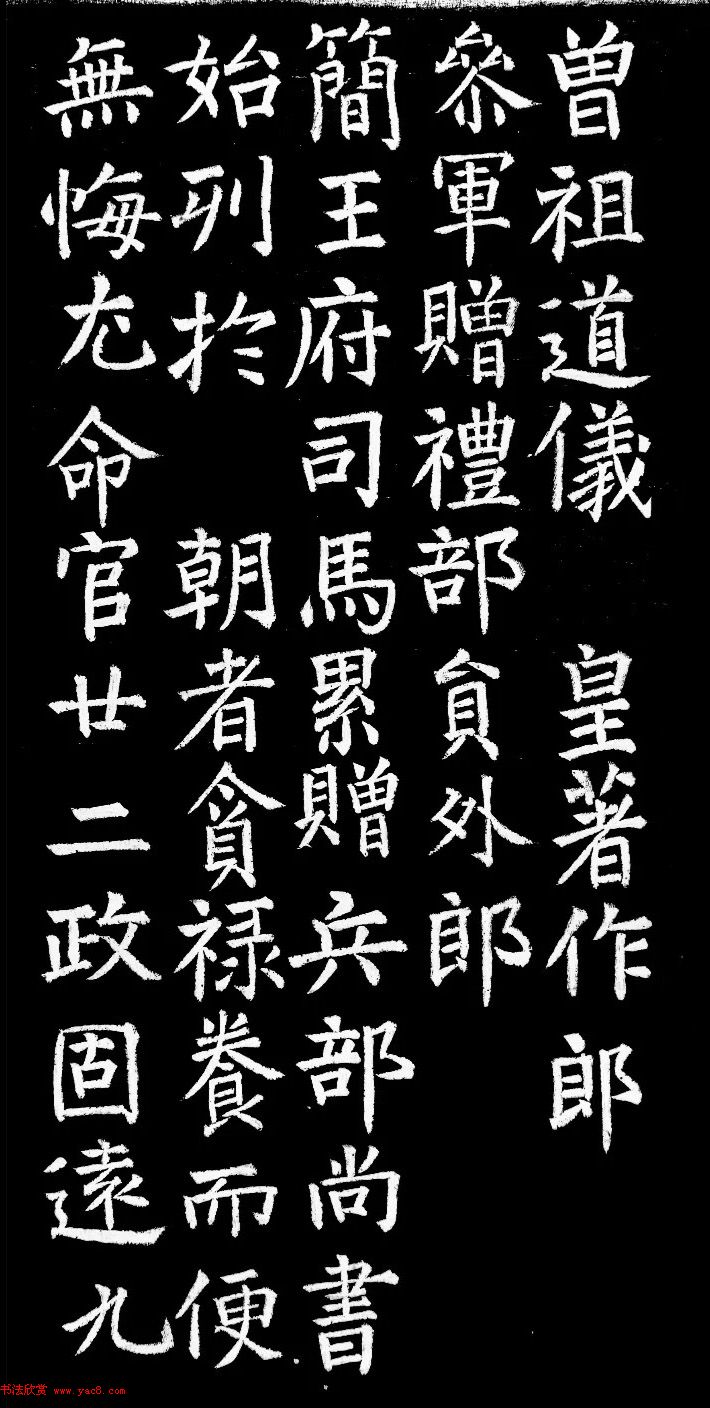 曽祖道儀　皇著作郎
叅軍贈禮部貟外郎
簡王府司馬累贈兵部尚書
始列於　朝者貪禄養而便
無悔尤命官廿二政固遠九
书法欣赏 www.yac8.com